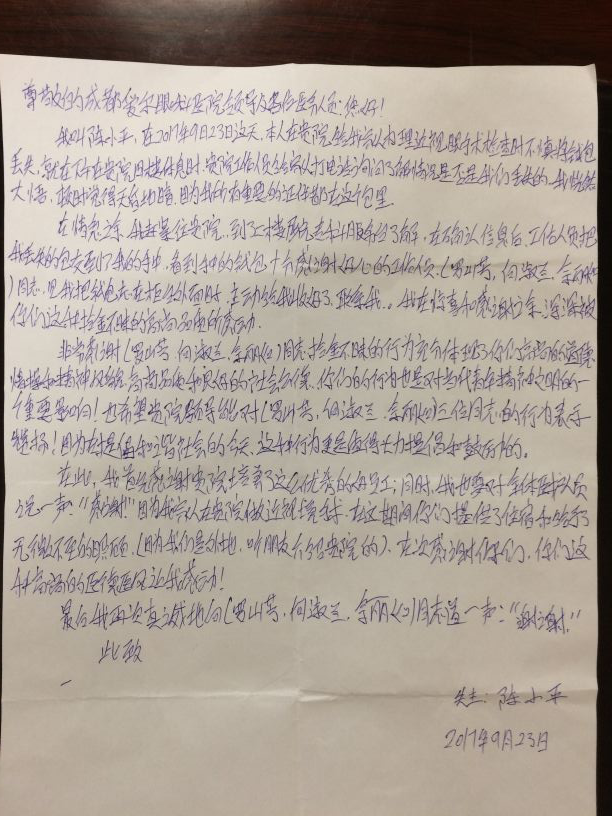 尊敬的成都爱尔眼科医院领导及各位医务人员:您好!
我叫陈小平,在2017年9月23日这天,本人在贵院给家人办理近视眼手术检查时不慎将钱包
丢失,就在下午在贵院用接休息时,贵院工作人员给家人打电话询问了解情况是否是我们丢失的,我恍然
大悟,顿时觉得天昏地暗,因为我所有重要的证件都在这个包里
在情急之余,我赶紧往贵院,到了二楼验光走斗服务台了解,在确认信息后,工作人员把
我丢失的包交到了我的手中,看到手中的钱包十分感谢好心的工作人员,(罗山芳,何淑兰,余丽
)同志,见我把钱包忘在柜台外面时,主动给我收好了,联系我.。我在惊喜和感谢之余,深深被
你们这种拾金不昧的高尚品质所感动.
非常感谢(罗山芳,何淑兰,余丽)同志,拾金不昧的行为充分体现了你们高尚的道德
情操和精神风貌,高尚品德和良好的社会公德。你们的行为也是对当代表在精神文明的一
个重要影响!也希望贵院领导能对(罗山芳,何淑兰,余丽)三位同志的行为表示
赞扬!因为在提倡和谐社会的今天,这种行为更是值得大力提倡和鼓励的。
在此,我首先感谢贵院培养了这么优秀的好员工;同时,我也要对全体医务人员
说一声:“感谢”因为我家人在贵院做近视手术,在这期间你们提供了住宿和给予了
无微不至的照顾,(因为我们是外地,听朋友介绍贵院的),在次感谢你们,你们这
种高尚的医德医风让我感动!
最后我再次真诚地向(罗山芳,何淑兰,余丽)同志道一声:“谢谢.”
此致
失主:陈小平
2017年9月23日